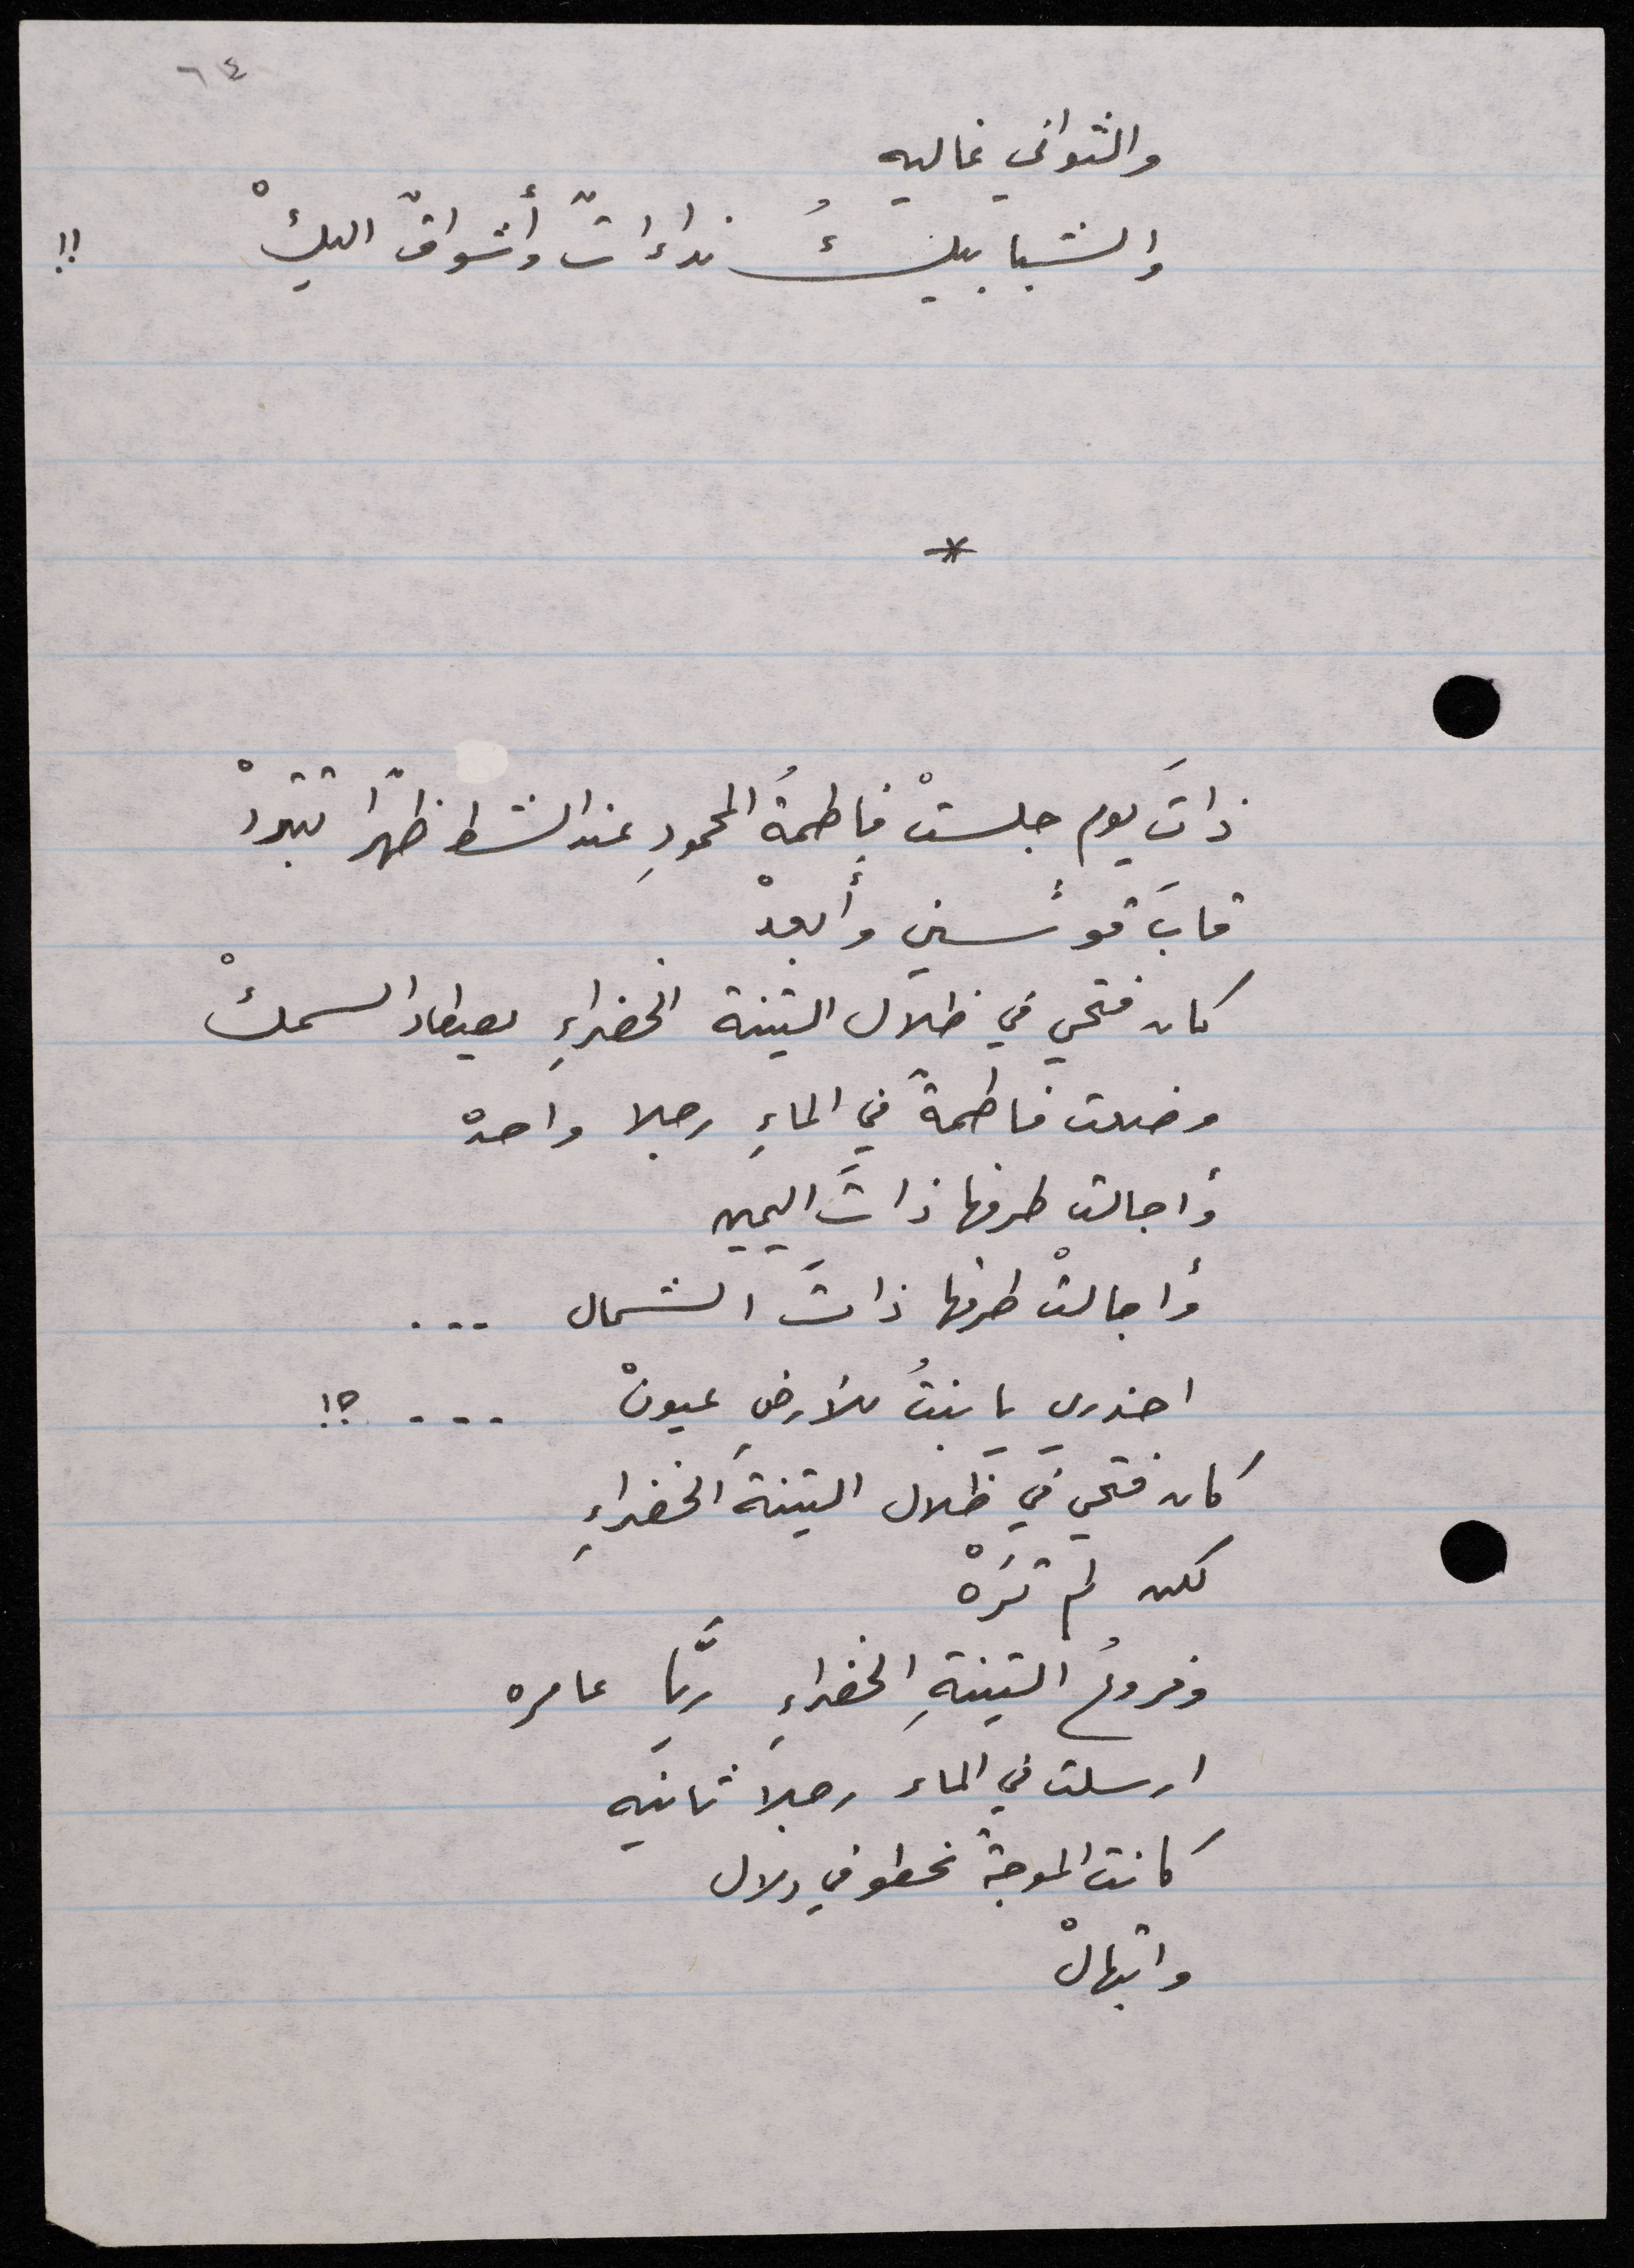 ٦٤
والثواني غاليه
والشبابيكُ نداءاتٌ وأشواقٌ اليكْ !!
*
ذاتَ يوم جلستْ فاطمةُ المحمودِ عند الشط ظهرًا تتبردْ
قابَ قوسين وأبعدْ
كان فتحي في ظلال التينة الخضراءِ يصطاد السمكْ
وضعت فاطمة في الماءِ رجلا واحده
وأجالت طرفها ذاتَ اليمين
وأجالتْ طرفها ذاتَ الشمال ...
احذري يا بنتُ للأرضِ عيونْ ... ؟!
كان فتحي في ظلال التينة الخضراءِ
لكن لم تَرَهْ
وفروعُ التينةِ الخضراءِ ريَّا عامره
ارسلت في الماء رجلاً ثانيه
كانت الموجة تخطو في دلال
وابتهالْ